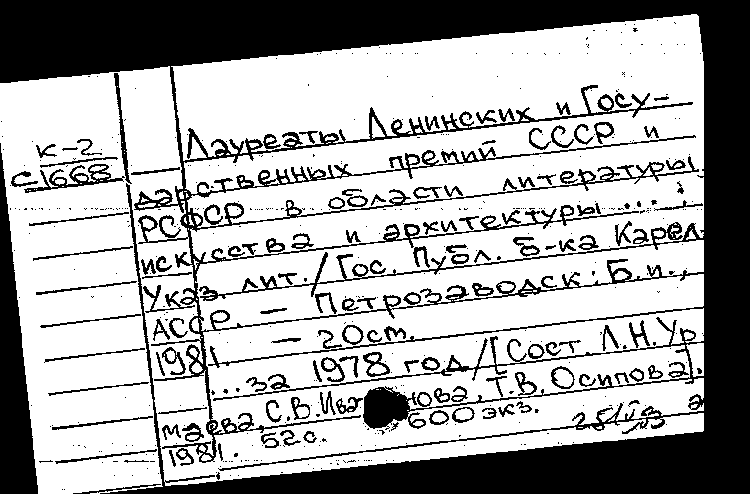 К-2
С-1668
Лауреаты Ленинских и Госу-
дарственных премий СССР и
РСФСР в области литературы,
искусства и архитектуры ... :
Указ. лит. / Гос. Публ. б-ка Карел.
АССР. — Петрозаводск: Б.и.,
1981. — 20см.
...за 1978 год / [Сост. Л.Н.Ур
маева, С.В.Ива нова, Т.В. Осипова].
1981. 52с. 600 экз.